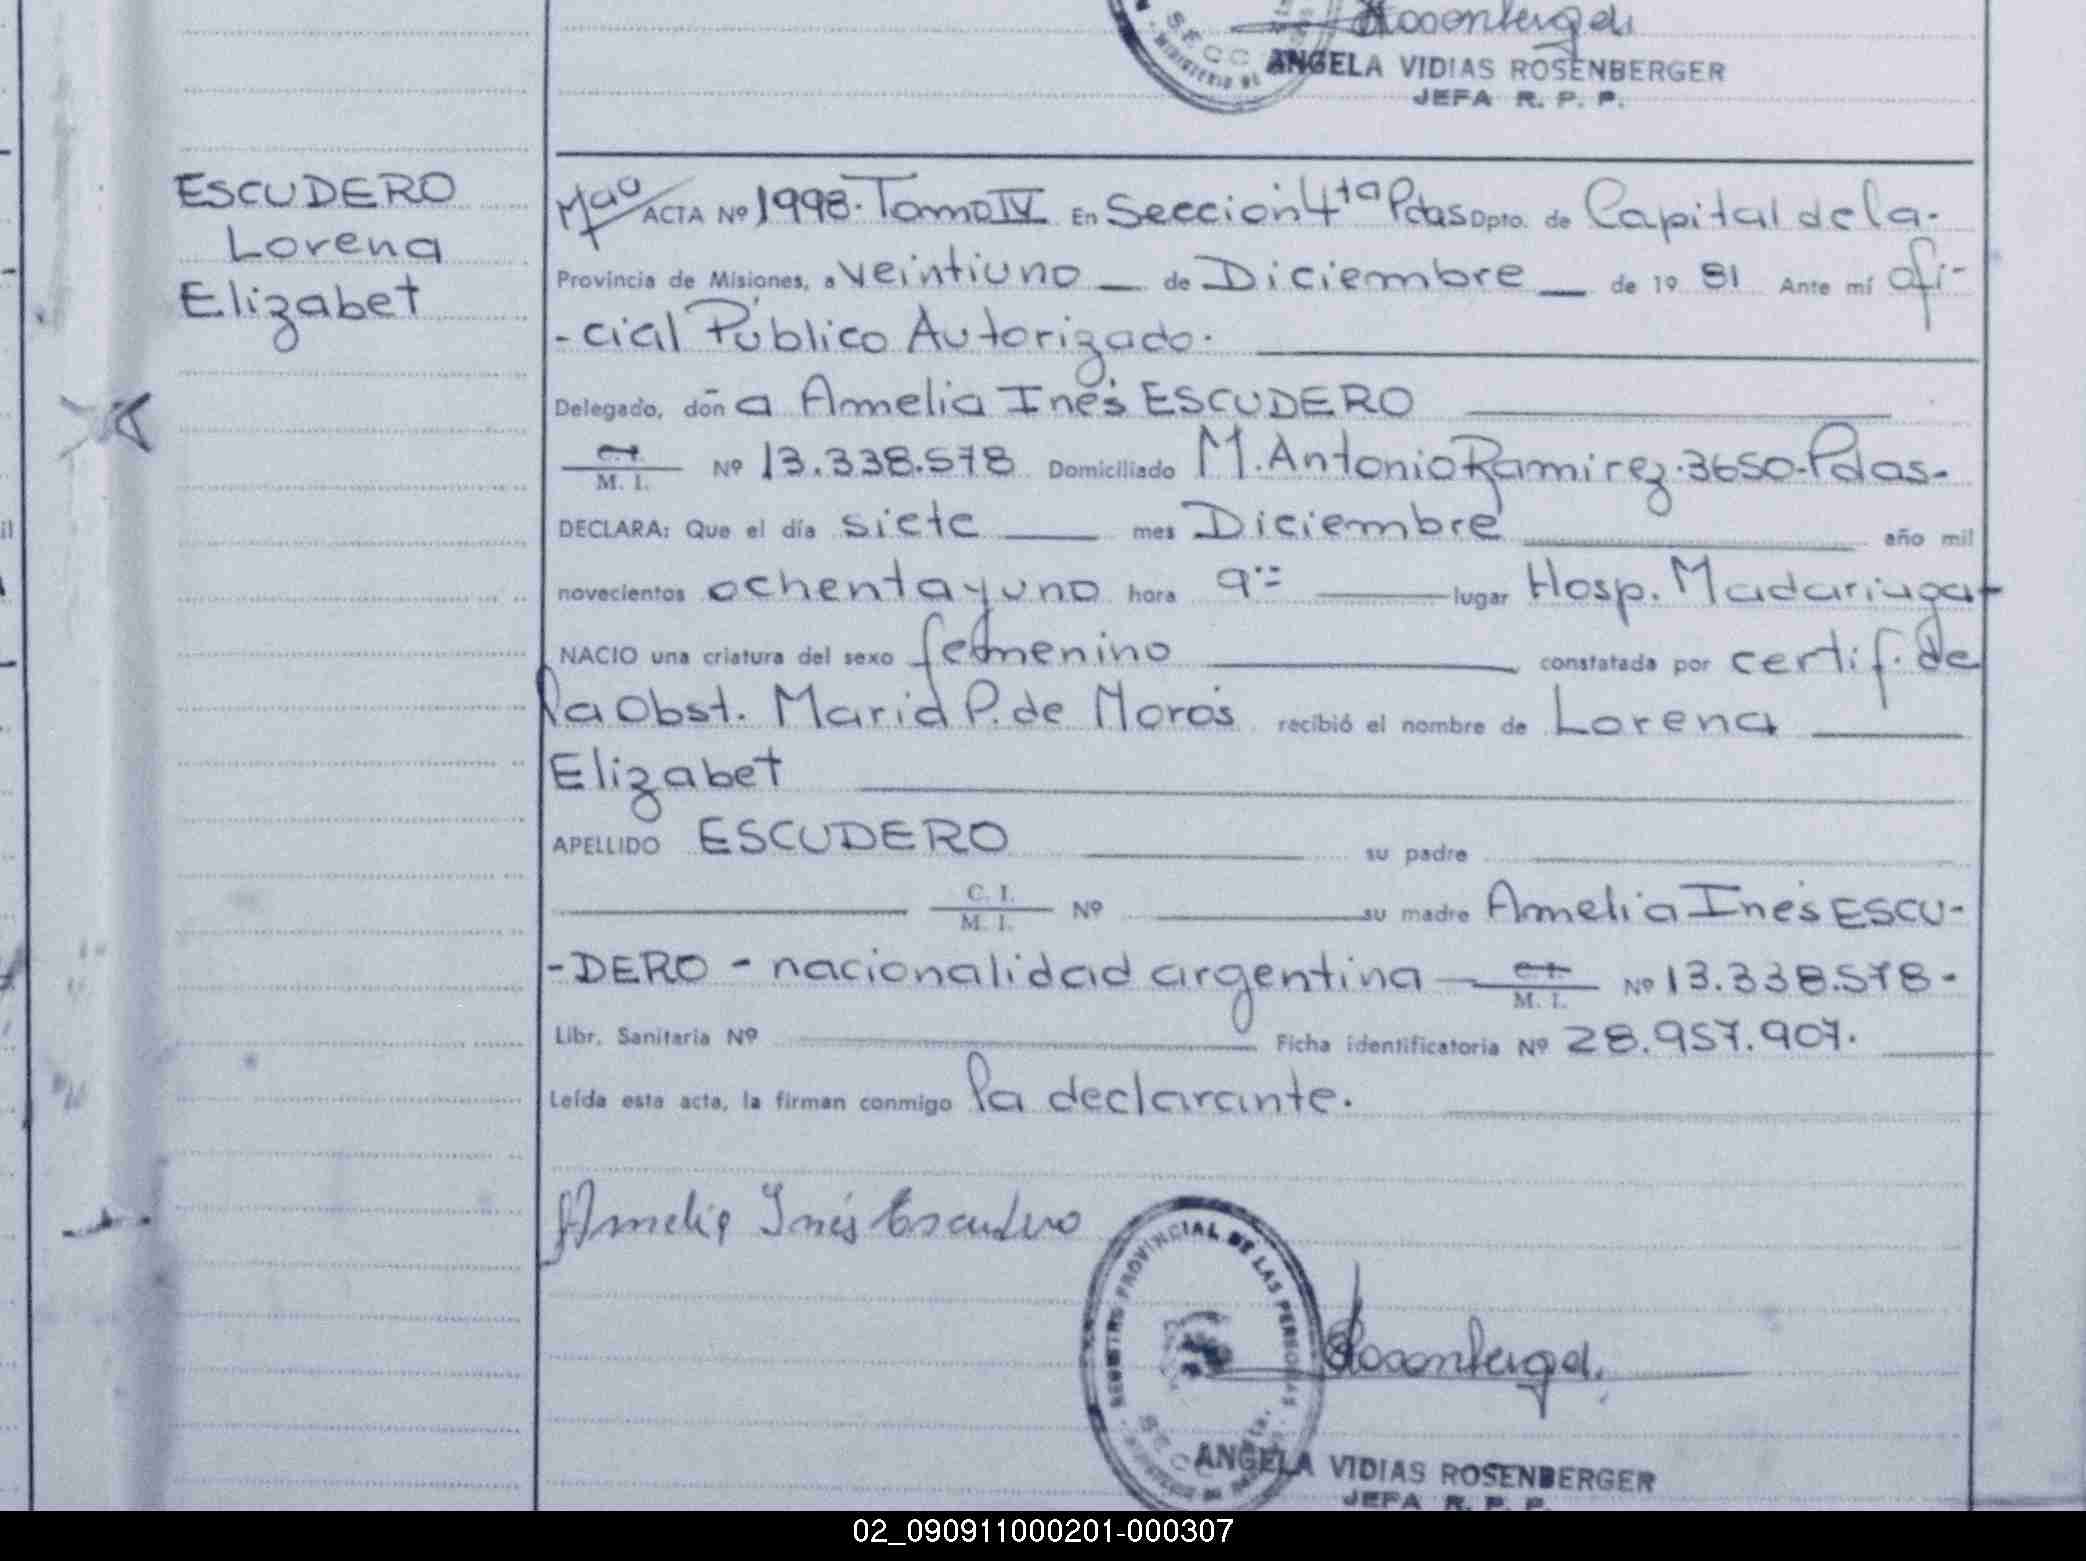 Rosenberger
SECC
MINISTERIO DE
ANGELA VIDIAS ROSENBERGER
JEFA R. P. P.
ESCUDERO
Lorena
Elizabet
ACTA Nº 1998. Tomo IV En Sección 4ta Pdas Dpto. de Capital de la-
Provincia de Misiones, a veintiuno _ de Diciembre _ de 19 81 Ante mí ofi-
-cial Público Autorizado.
Delegado, don a Amelia Inés ESCUDERO
C. I.
M. I. Nº 13.338.578 Domiciliado M. Antonio Ramirez.3650-Pdas-
DECLARA: Que el día siete mes Diciembre año mil
novecientos ochenta y uno hora 9 lugar Hosp. Madariaga-
NACIO una criatura del sexo femenino constatada por certif. de
la Obst. Maria P. de Morós recibió el nombre de Lorena
Elizabet
APELLIDO ESCUDERO su padre
C. I.
M. I. Nº su madre Amelia Inés ESCU-
-DERO - nacionalidad argentina C. I. M. I. Nº 13.338.578-
Libr. Sanitaria Nº Ficha identificatoria Nº 28.957.907.
Leída esta acta, la firman conmigo la declarante.
Amelia Inés Escudero
REGISTRO PROVINCIAL DE LAS PERSONAS
SECC 4ta.
Rosenberger
ANGELA VIDIAS ROSENBERGER
JEFA R. P. P.
02_090911000201-000307